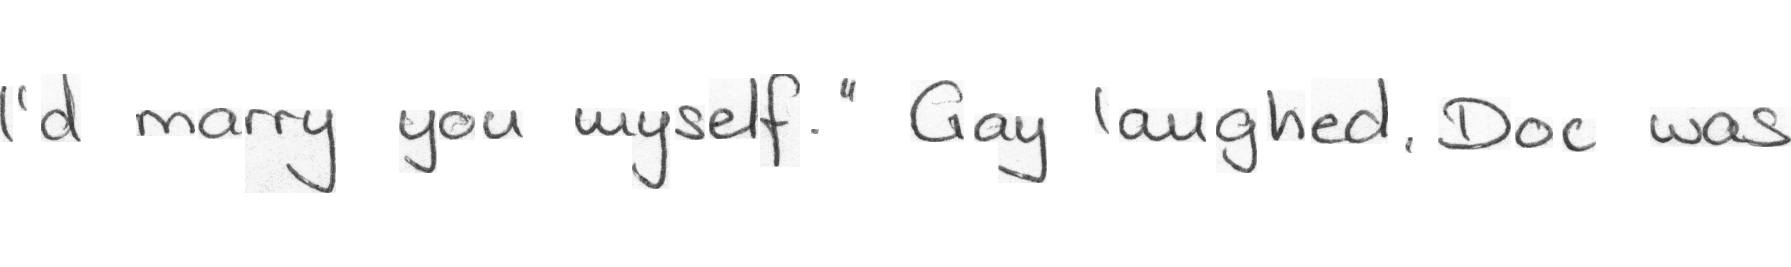 I'd marry you myself." Gay laughed. Doc was